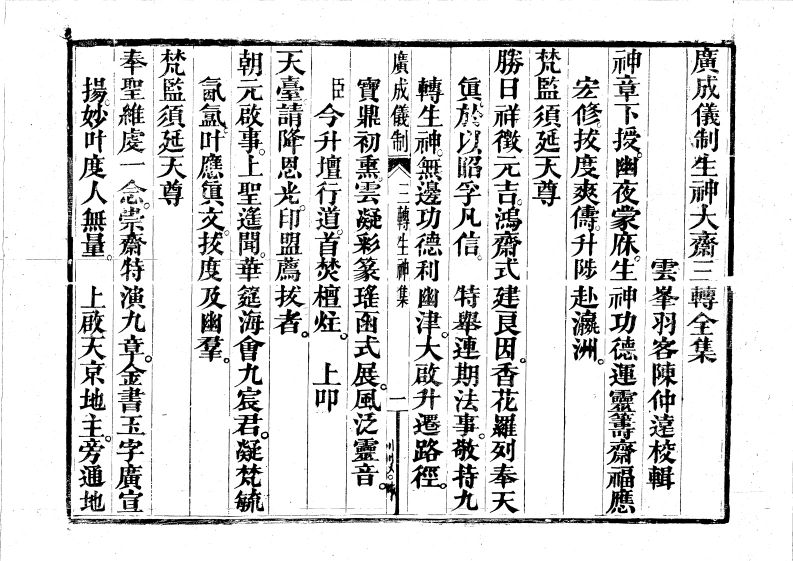 廣成儀制生神大齋三轉全集
雲峯羽客陳仲遠校輯
神章下授。幽夜蒙庥。生神功德運靈籌。齋福應
宏修。拔度爽儔。升陟赴瀛洲。
梵監須延天尊
勝日祥徵元吉。鴻齋式建良因。香花羅列奉天
眞。於以昭孚凡信。 特舉連期法事。敬持九
轉生神。無邊功德利幽津。大啟升遷路徑。
廣成儀制 三轉生神集 一
寶鼎初熏。雲凝彩篆。瑤函式展。風泛靈音。
臣 今升壇行道。首焚檀炷。 上叩
天臺請降恩光印盟薦拔者。
朝元啟事。上聖遙聞。華筵海會九宸君。凝梵毓
氤氳。叶應眞文。拔度及幽羣。
梵監須延天尊
奉聖維虔一念。崇齋特演九章。金書玉字廣宣
揚。妙叶度人無量。 上啟天京地主。旁通地